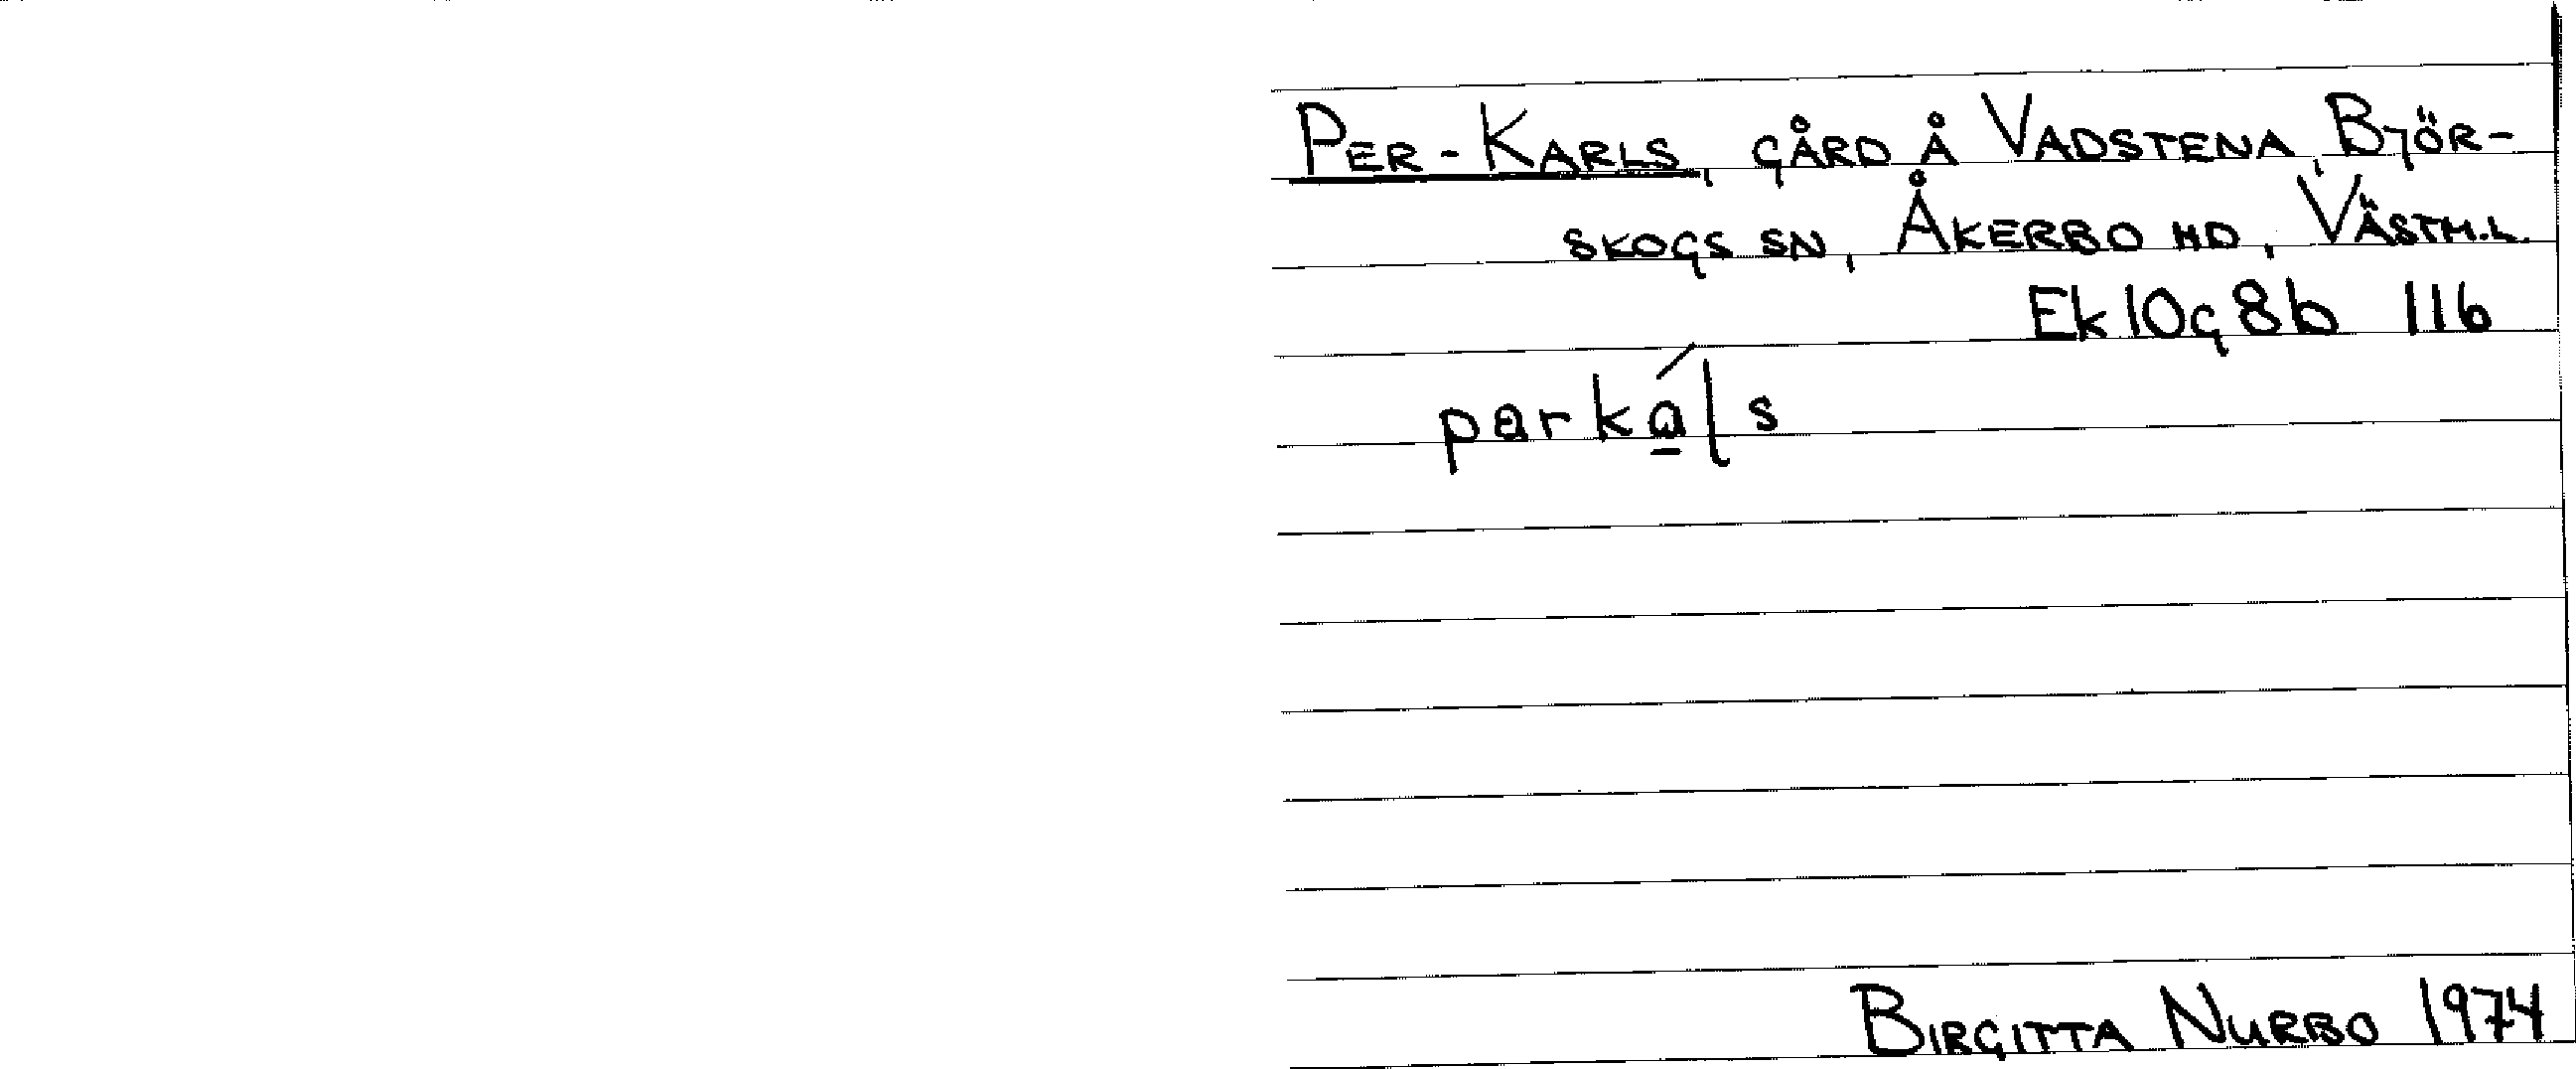 PER-KARLS, GÅRD Å VADSTENA, BJÖR-
SKOGS SN, ÅKERBO HD, VÄSTM.L.
Ek 10g8b 116
parkáls
BIRGITTA NURBO 1974